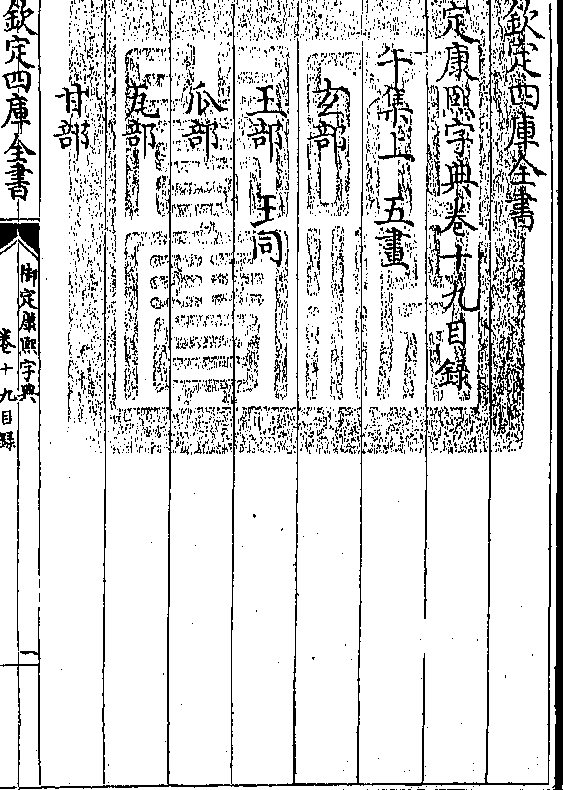 欽定四庫全書
定康熙字典卷十九目録
午集上 五畫
玄部
玉部 王同
瓜部
瓦部
甘部
欽定四庫全書
御定康熙字典
卷十九目録
一